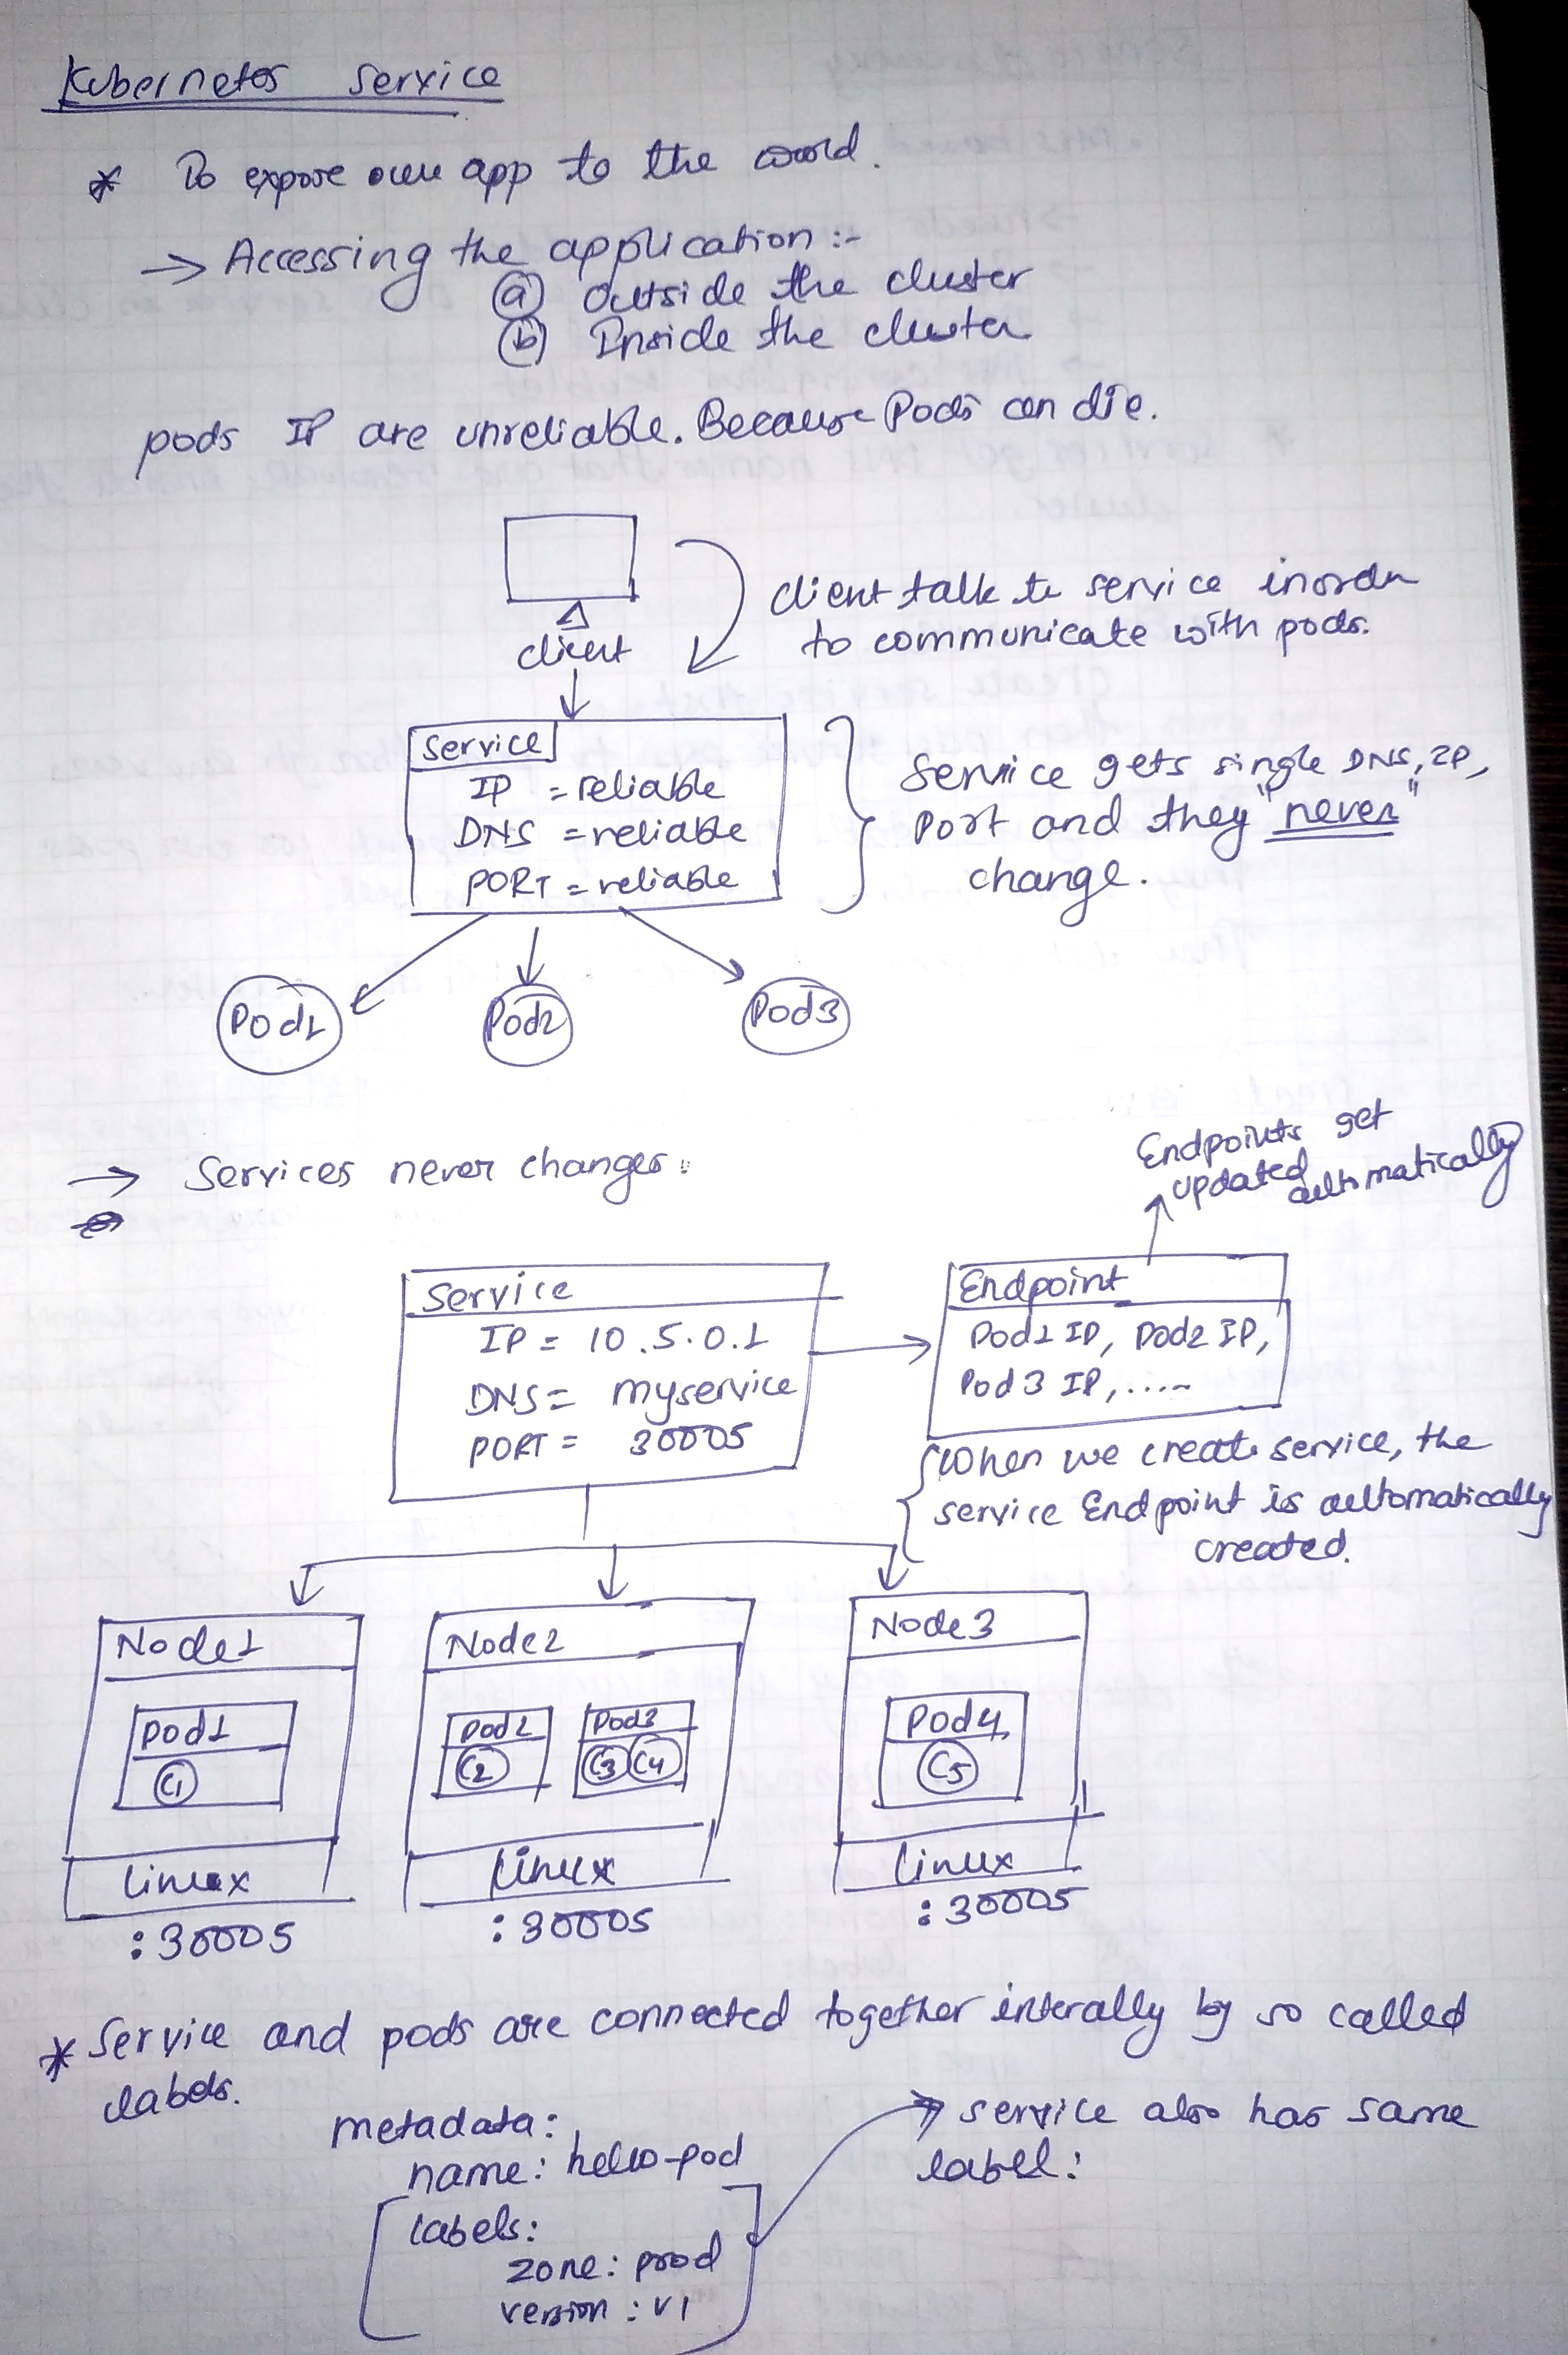 Kubernetes Service
* To expose our app to the world.
→ Accessing the application :-
(a) Outside the cluster
(b) Inside the cluster
pods IP are unreliable. Because Pods can die.
client
client talk to service inorder
to communicate with pods.
Service
IP = reliable
DNS = reliable
PORT = reliable
Service gets single DNS, IP,
Port and they "never"
change.
Pod1
Pod2
Pod3
→ Services never changes.
Endpoints get
updated
automatically
Service
IP = 10.5.0.1
DNS = myservice
PORT = 30005
Endpoint
Pod1 IP, Pod2 IP,
Pod3 IP, .....
When we create service, the
service Endpoint is automatically
created.
Node1
Pod1
C1
Linux
:30005
Node2
Pod2
C2
Pod3
C3 C4
Linux
:30005
Node3
Pod4
C5
Linux
:30005
* Service and pods are connected together interally by so called
labels.
metadata:
name: hello-pod
labels:
zone: prod
version: v1
→ service also has same
label: